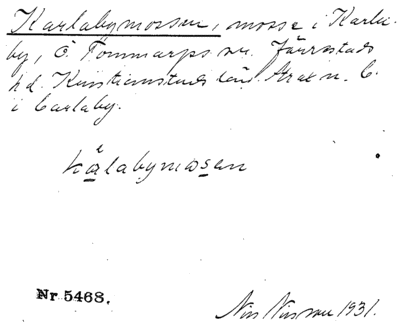 Karlabymossen, mosse i Karla-
by, Ö. Tommarps sn. Järrestads
hd. Kristianstads län. Strax n. C.
i Carlaby.
kalabymosen
Nr 5468.
Nils Nilsson 1931.